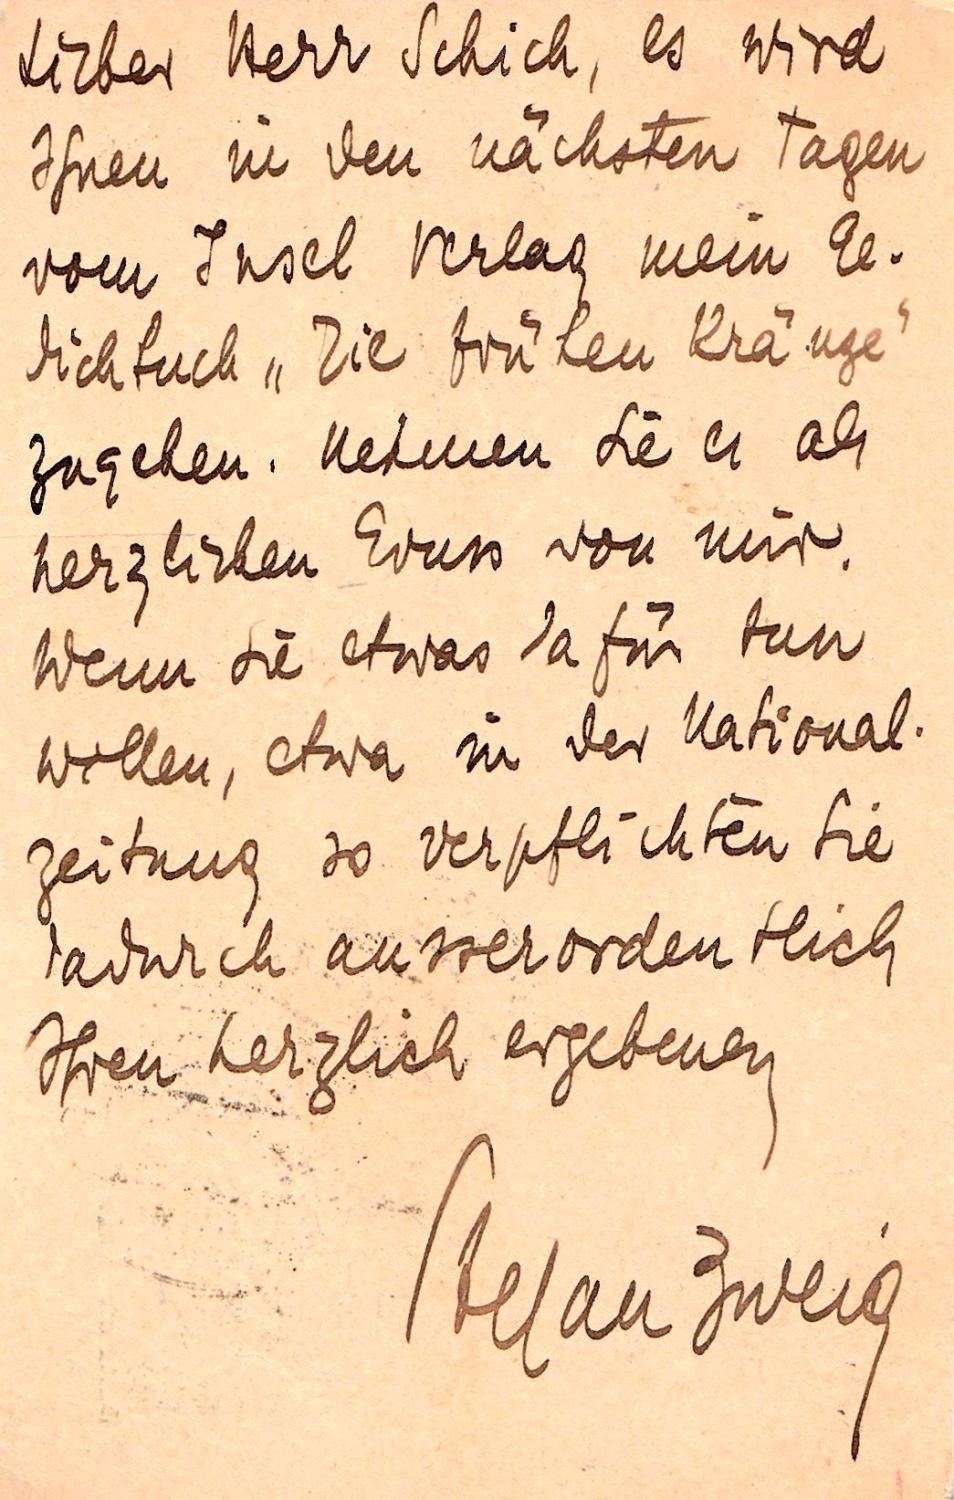 Lieber Herr Schich, es wird
Ihnen in den nächsten Tagen
vom Insel Verlag mein Ge-
dichtbuch „Die frühen Kränze"
zugehen. Nehmen Sie es als
herzlichen Gruss von mir.
Wenn Sie etwas dafür tun
wollen, etwa in der National-
zeitung so verpflichten Sie
dadurch ausserordentlich
Ihren herzlich ergebenen
Stefan Zweig